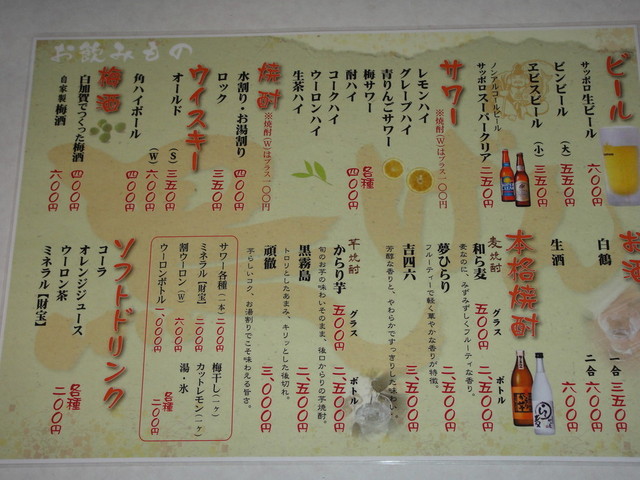 お飲みもの
ビール
サッポロ生ビール 六〇〇円
ビンビール (大) 五五〇円
ヱビスビール (小) 三五〇円
ノンアルコールビール
サッポロスーパークリア 二五〇円
サワー
※焼酎(W)はプラス一〇〇円
レモンハイ
グレープハイ
青りんごサワー
梅サワー
酎ハイ
コークハイ
ウーロンハイ
生茶ハイ
各種
四〇〇円
焼酎
※焼酎(W)はプラス一〇〇円
水割り・お湯割り 四〇〇円
ロック 四〇〇円
ウイスキー
オールド (S) 三五〇円
(W) 六〇〇円
角ハイボール 四〇〇円
梅酒
白加賀でつくった梅酒 四〇〇円
自家製梅酒 六〇〇円
お酒
白鶴 一合 三五〇円
二合 六〇〇円
生酒 六〇〇円
本格焼酎
麦焼酎 グラス ボトル
和ら麦 五〇〇円 二、五〇〇円
麦なのに、みずみずしくフルーティな香り。
夢ひらり 二、五〇〇円
フルーティーで軽く華やかな香りが特徴。
吉四六 三、五〇〇円
芳醇な香りと、やわらかですっきりした味わい。
芋焼酎 グラス ボトル
からり芋 五〇〇円 二、五〇〇円
旬のお芋の味わいそのまま、後口からりの芋焼酎。
黒霧島 二、五〇〇円
トロリとしたあまみ、キリッとした後切れ。
頑徹 三、〇〇〇円
芋らしいコク、お湯割りでこそ味わえる旨さ。
サワー各種(一本) 二〇〇円
ミネラル【財宝】 二〇〇円
割ウーロン(W) 六〇〇円
ウーロンボトル 一、〇〇〇円
梅干し(一ヶ)
カットレモン(一ヶ)
湯・氷
各種
二〇〇円
ソフトドリンク
コーラ
オレンジジュース
ウーロン茶
ミネラル【財宝】
各種
二〇〇円